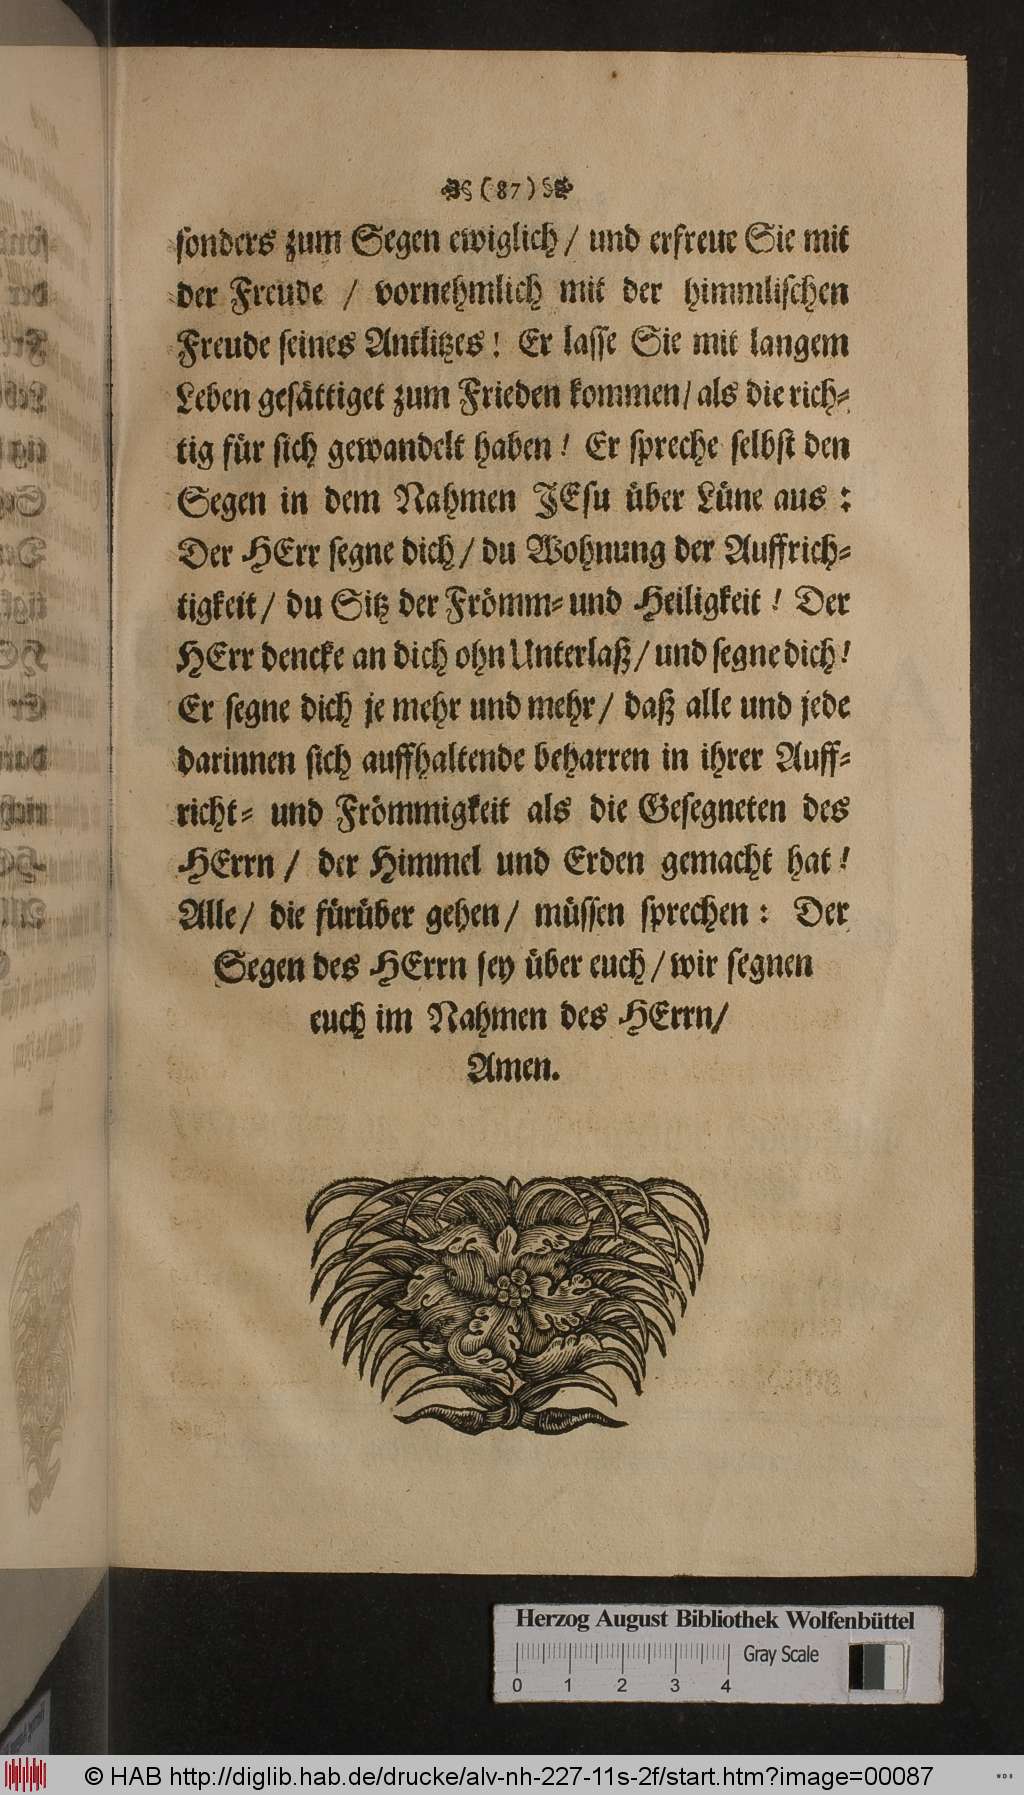 (87)
sonders zum Segen ewiglich / und erfreue Sie mit
der Freude / vornehmlich mit der himmlischen
Freude seines Antlitzes! Er lasse Sie mit langem
Leben gesättiget zum Frieden kommen / als die rich-
tig für sich gewandelt haben! Er spreche selbst den
Segen in dem Nahmen JEsu über Lüne aus:
Der HErr segne dich / du Wohnung der Auffrich-
tigkeit / du Sitz der Frömm- und Heiligkeit! Der
HErr dencke an dich ohn Unterlaß / und segne dich!
Er segne dich je mehr und mehr / daß alle und jede
darinnen sich auffhaltende beharren in ihrer Auff-
richt- und Frömmigkeit als die Gesegneten des
HErrn / der Himmel und Erden gemacht hat!
Alle / die fürüber gehen / müssen sprechen: Der
Segen des HErrn sey über euch / wir segnen
euch im Nahmen des HErrn /
Amen.
Herzog August Bibliothek Wolfenbüttel
Gray Scale
0 1 2 3 4
© HAB http://diglib.hab.de/drucke/alv-nh-227-11s-2f/start.htm?image=00087